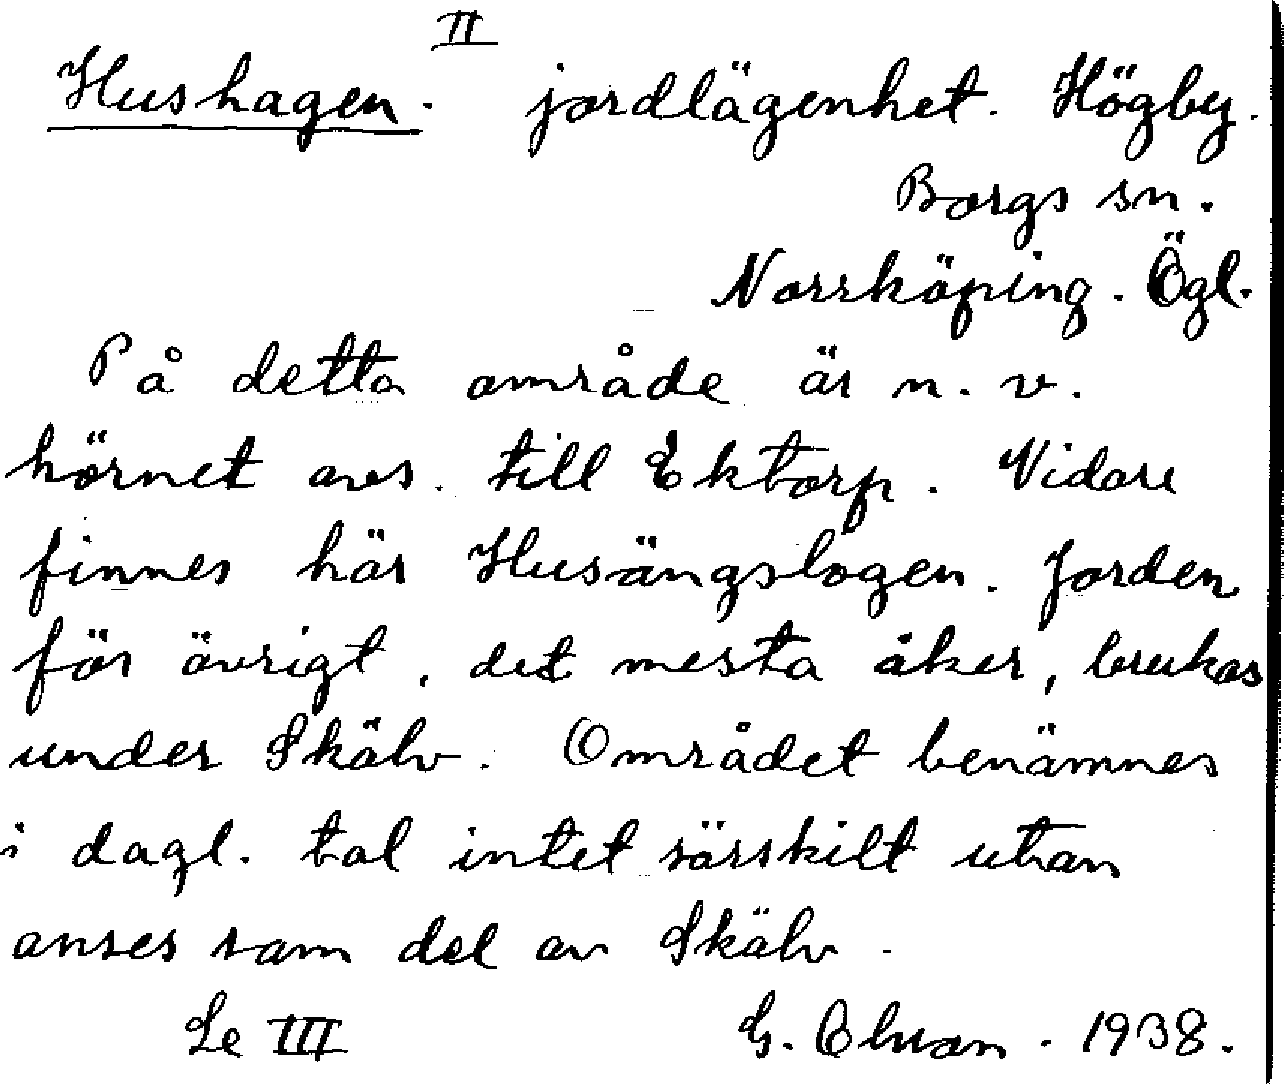 II
Hushagen. jordlägenhet. Högby.
Borgs sn.
Norrköping. Ögl.
På detta område är n. v.
hörnet avs. till Ektorp. Vidare
finnes här Husängslogen. Jorden
för övrigt, det mesta åker, brukas
under Skälv. Området benämnes
i dagl. tal intet särskilt utan
anses som del av Skälv.
Se III
G. 1938.